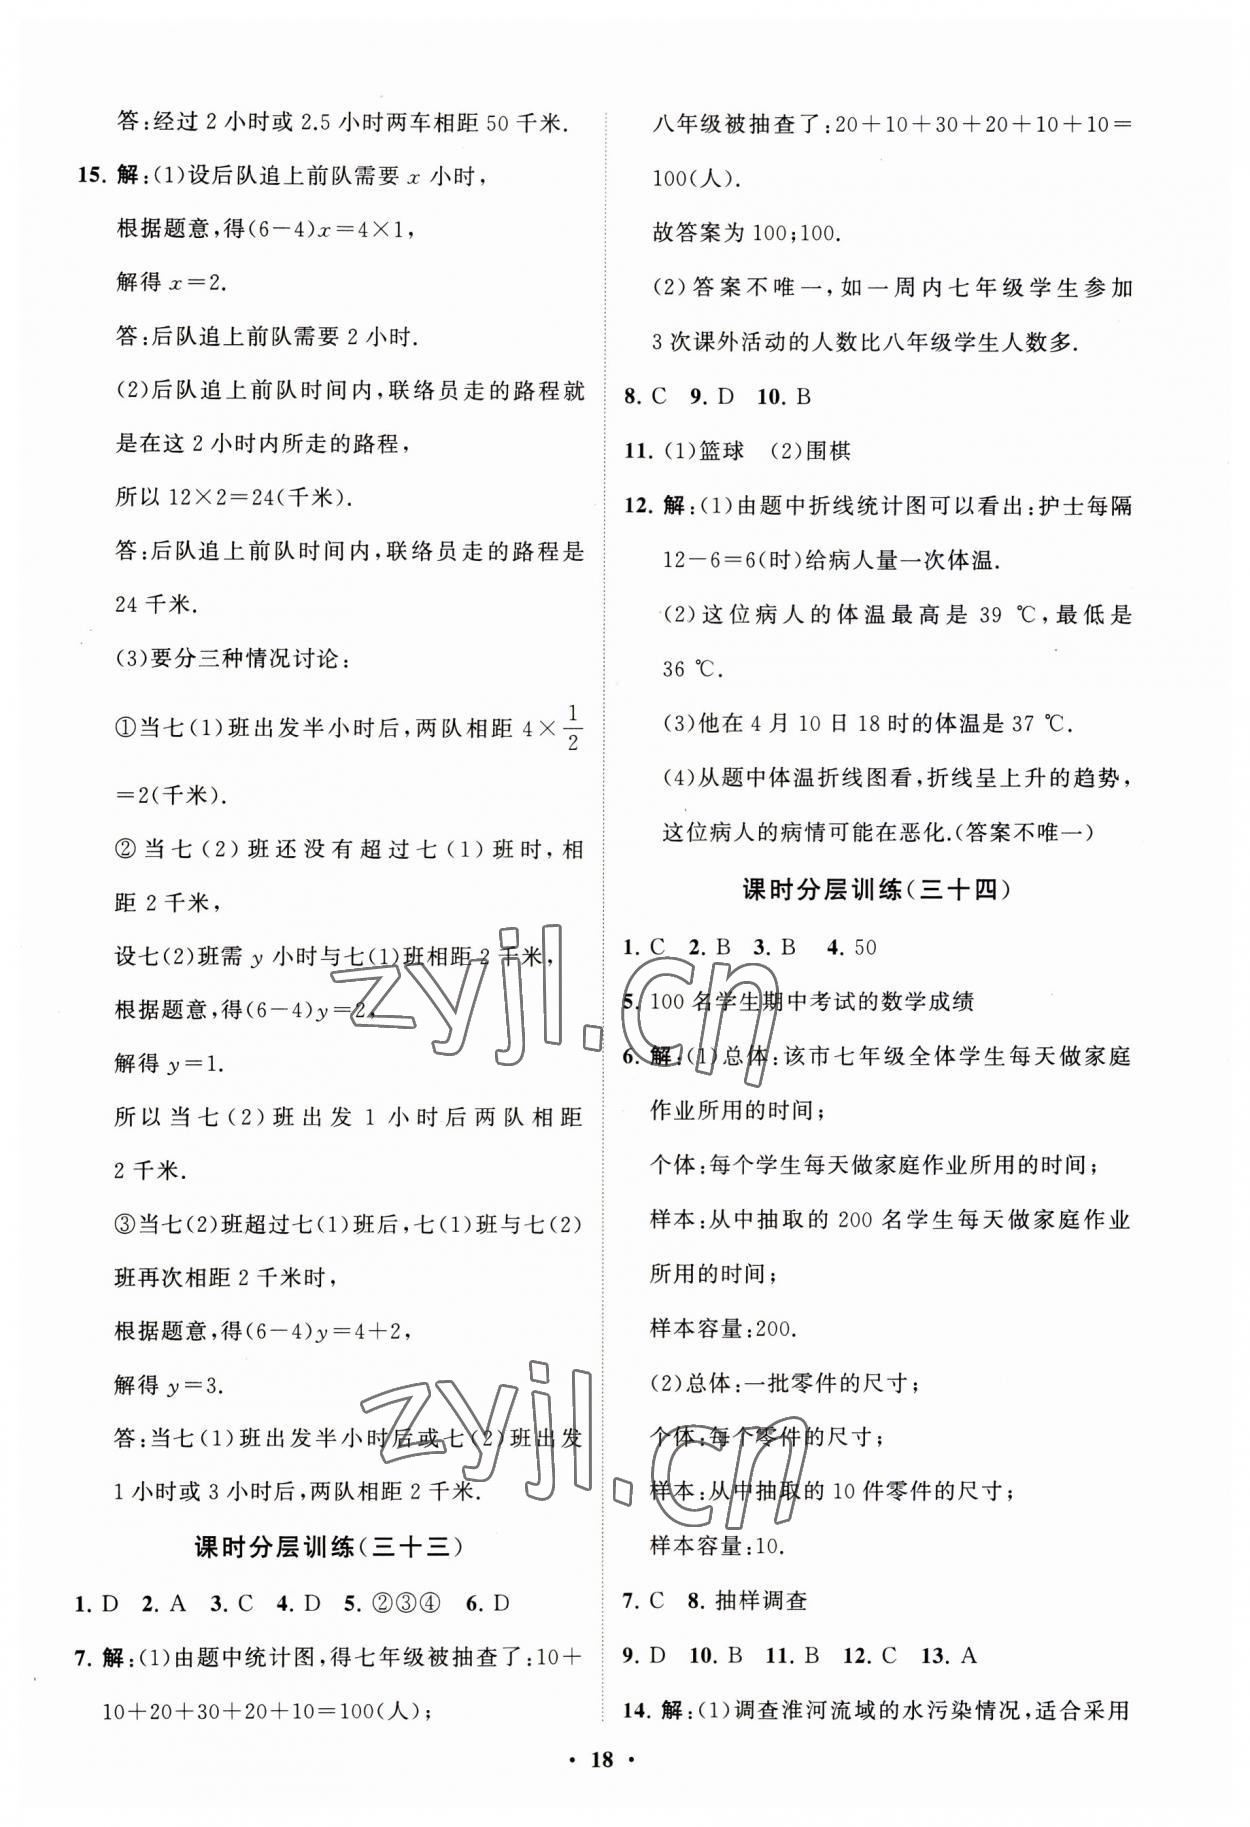 答:经过 2 小时或 2.5 小时两车相距 50 千米.
15. 解:(1)设后队追上前队需要 x 小时,
根据题意,得(6－4)x＝4×1,
解得 x＝2.
答:后队追上前队需要 2 小时.
(2)后队追上前队时间内,联络员走的路程就
是在这 2 小时内所走的路程,
所以 12×2＝24(千米).
答:后队追上前队时间内,联络员走的路程是
24 千米.
(3)要分三种情况讨论:
①当七(1)班出发半小时后,两队相距 4×1/2
＝2(千米).
②当七(2)班还没有超过七(1)班时,相
距 2 千米,
设七(2)班需 y 小时与七(1)班相距 2 千米,
根据题意,得(6－4)y＝2,
解得 y＝1.
所以当七(2)班出发 1 小时后两队相距
2 千米.
③当七(2)班超过七(1)班后,七(1)班与七(2)
班再次相距 2 千米时,
根据题意,得(6－4)y＝4＋2,
解得 y＝3.
答:当七(1)班出发半小时后或七(2)班出发
1 小时或 3 小时后,两队相距 2 千米.
课时分层训练(三十三)
1. D 2. A 3. C 4. D 5. ②③④ 6. D
7. 解:(1)由题中统计图,得七年级被抽查了:10＋
10＋20＋30＋20＋10＝100(人);
八年级被抽查了:20＋10＋30＋20＋10＋10＝
100(人).
故答案为 100;100.
(2)答案不唯一,如一周内七年级学生参加
3 次课外活动的人数比八年级学生人数多.
8. C 9. D 10. B
11. (1)篮球 (2)围棋
12. 解:(1)由题中折线统计图可以看出:护士每隔
12－6＝6(时)给病人量一次体温.
(2)这位病人的体温最高是 39 ℃,最低是
36 ℃.
(3)他在 4 月 10 日 18 时的体温是 37 ℃.
(4)从题中体温折线图看,折线呈上升的趋势,
这位病人的病情可能在恶化.(答案不唯一)
课时分层训练(三十四)
1. C 2. B 3. B 4. 50
5. 100 名学生期中考试的数学成绩
6. 解:(1)总体:该市七年级全体学生每天做家庭
作业所用的时间;
个体:每个学生每天做家庭作业所用的时间;
样本:从中抽取的 200 名学生每天做家庭作业
所用的时间;
样本容量:200.
(2)总体:一批零件的尺寸;
个体:每个零件的尺寸;
样本:从中抽取的 10 件零件的尺寸;
样本容量:10.
7. C 8. 抽样调查
9. D 10. B 11. B 12. C 13. A
14. 解:(1)调查淮河流域的水污染情况,适合采用
• 18 •
zyjl.cn
zyjl.cn